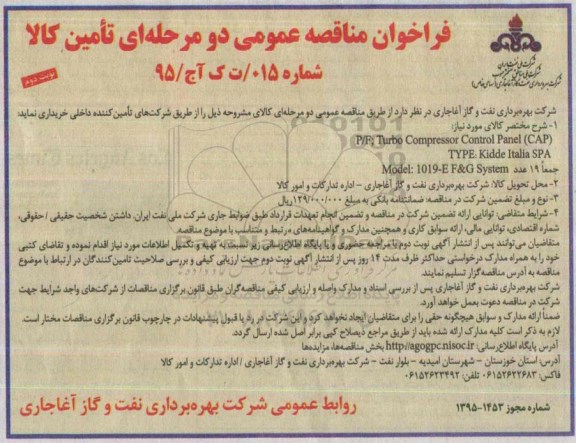 فراخوان مناقصه عمومی دو مرحله‌ای تأمین کالا
شماره ۰۱۵/ت ک آج/۹۵
نوبت دوم
شرکت ملی نفت ایران
شرکت بهره‌برداری نفت و گاز آغاجاری (سهامی خاص)
شرکت بهره‌برداری نفت و گاز آغاجاری در نظر دارد از طریق مناقصه عمومی دو مرحله‌ای کالای مشروحه ذیل را از طریق شرکت‌های تأمین‌کننده داخلی خریداری نماید:
۱-شرح مختصر کالای مورد نیاز:
P/F; Turbo Compressor Control Panel (CAP)
TYPE: Kidde Italia SPA
Model: 1019-E F&G System جمعاً ۱۹ عدد
۲- محل تحویل کالا: شرکت بهره‌برداری نفت و گاز آغاجاری – اداره تدارکات و امور کالا
۳- نوع و مبلغ تضمین شرکت در مناقصه: ضمانتنامه بانکی به مبلغ ۱۳۹/۰۰۰/۰۰۰ ریال
۴- شرایط متقاضی: توانایی ارائه تضمین شرکت در مناقصه و تضمین انجام تعهدات قرارداد طبق ضوابط جاری شرکت ملی نفت ایران، داشتن شخصیت حقیقی / حقوقی،
شماره اقتصادی، توانایی مالی، ارائه سوابق کاری و همچنین مدارک و گواهینامه‌های مرتبط و متناسب با موضوع مناقصه.
متقاضیان می‌توانند پس از انتشار آگهی نوبت دوم با مراجعه حضوری و یا پایگاه اطلاع‌رسانی زیر نسبت به تهیه و تکمیل اطلاعات مورد نیاز اقدام نموده و تقاضای کتبی
خود را به همراه مدارک درخواستی حداکثر ظرف مدت ۱۴ روز پس از انتشار آگهی نوبت دوم جهت ارزیابی کیفی و بررسی صلاحیت تامین‌کنندگان در ارتباط با موضوع
مناقصه به آدرس مناقصه‌گزار تسلیم نمایند.
شرکت بهره‌برداری نفت و گاز آغاجاری پس از بررسی اسناد و مدارک واصله و ارزیابی کیفی مناقصه‌گران طبق قانون برگزاری مناقصات از شرکت‌های واجد شرایط جهت
شرکت در مناقصه دعوت بعمل خواهد آورد.
ضمناً ارائه مدارک و سوابق هیچگونه حقی را برای متقاضیان ایجاد نخواهد کرد و این شرکت در رد یا قبول پیشنهادات در چارچوب قانون برگزاری مناقصات مختار است.
لازم به ذکر است کلیه مدارک ارائه شده باید از طریق مراجع ذیصلاح کپی برابر اصل شده ارسال گردد.
آدرس پایگاه اطلاع‌رسانی: http://agogpc.nisoc.ir بخش مناقصه‌ها، مزایده‌ها
آدرس: استان خوزستان – شهرستان امیدیه – بلوار نفت – شرکت بهره‌برداری نفت و گاز آغاجاری / اداره تدارکات و امور کالا
فاکس: ۰۶۱۵۲۶۲۲۶۸۳ تلفن: ۰۶۱۵۲۶۲۳۴۹۲
شماره مجوز ۱۴۵۳-۱۳۹۵
روابط عمومی شرکت بهره‌برداری نفت و گاز آغاجاری